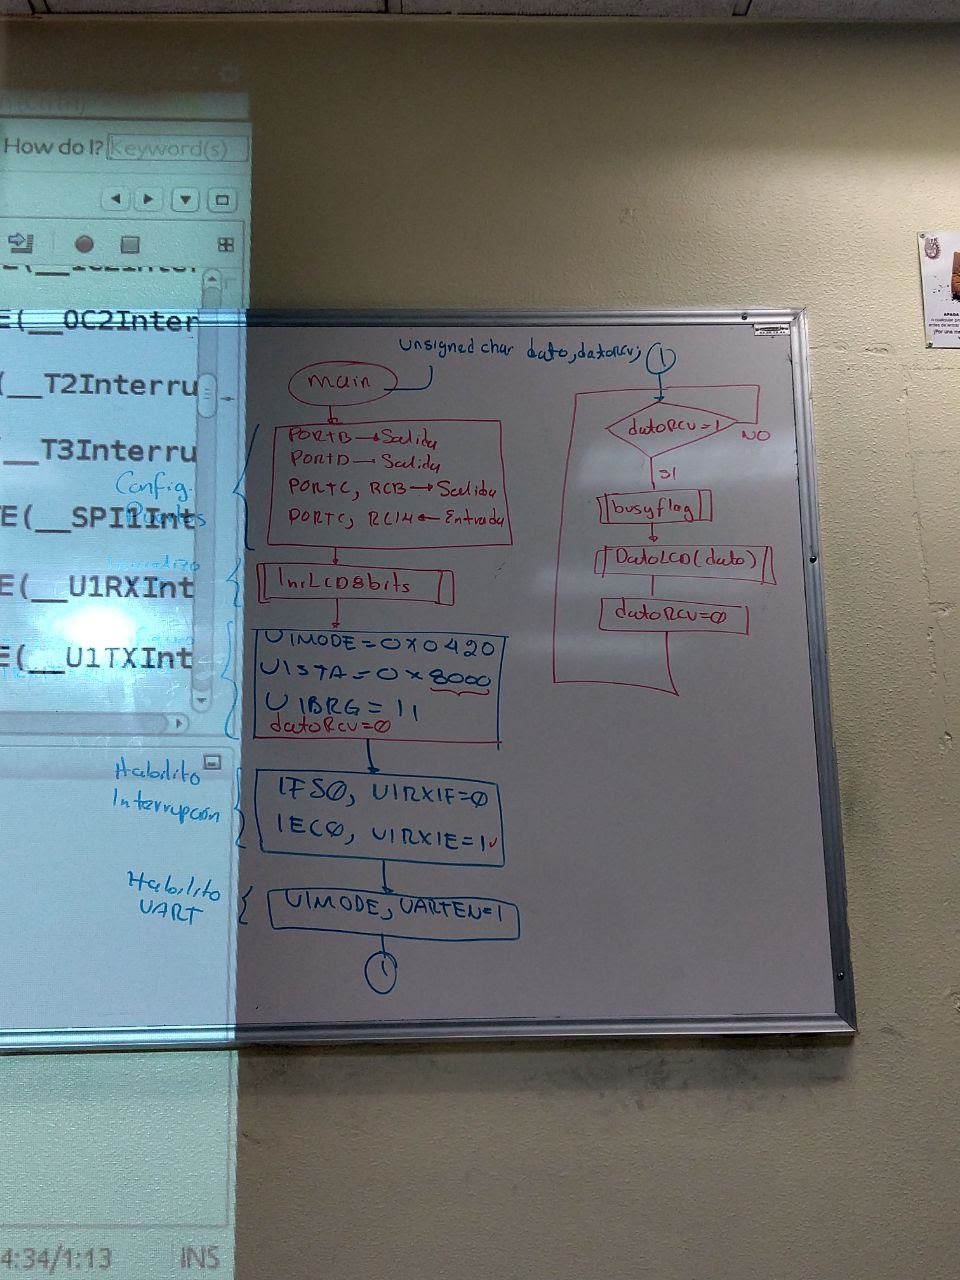 How do I? Keyword(s)
E(__OC2Inter
(__T2Interru
__T3Interru
E(__SPI1Int
E(__U1RXInt
E(__U1TXInt
4:34/1:13 INS
unsigned char dato, datoRcv;
main
PORTB → Salida
PORTD → Salida
PORTC, RC13 → Salida
PORTC, RC14 ← Entrada
Config.
Puertos
IniLCD8bits
U1MODE=0x0420
U1STA=0x8000
U1BRG=11
datoRcv=0
Habilito
Interrupción
IFS0, U1RXIF=0
IEC0, U1RXIE=1
Habilito
UART
U1MODE, UARTEN=1
1
1
datoRCV=1
NO
SI
busyflag
DatoLCD(dato)
datoRCV=0
APAGA